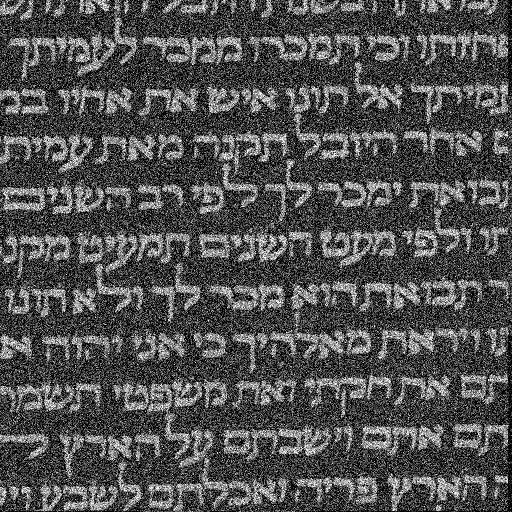 בשנת היובל הזאת
אחזתו וכי תמכרו ממכר לעמיתך
עמיתך אל תונו איש את אחיו במ
ם אחר היובל תקנה מאת עמית
תבואת ימכר לך לפי רב השנים
תו ולפי מעט השנים תמעיט מקנ
ר תבואת הוא מכר לך ולא תונו
ויראת מאלהיך כי אני יהוה א
תם את חקתי ואת משפטי תשמר
תם אתם וישבתם על הארץ
ה הארץ פריה ואכלתם לשבע